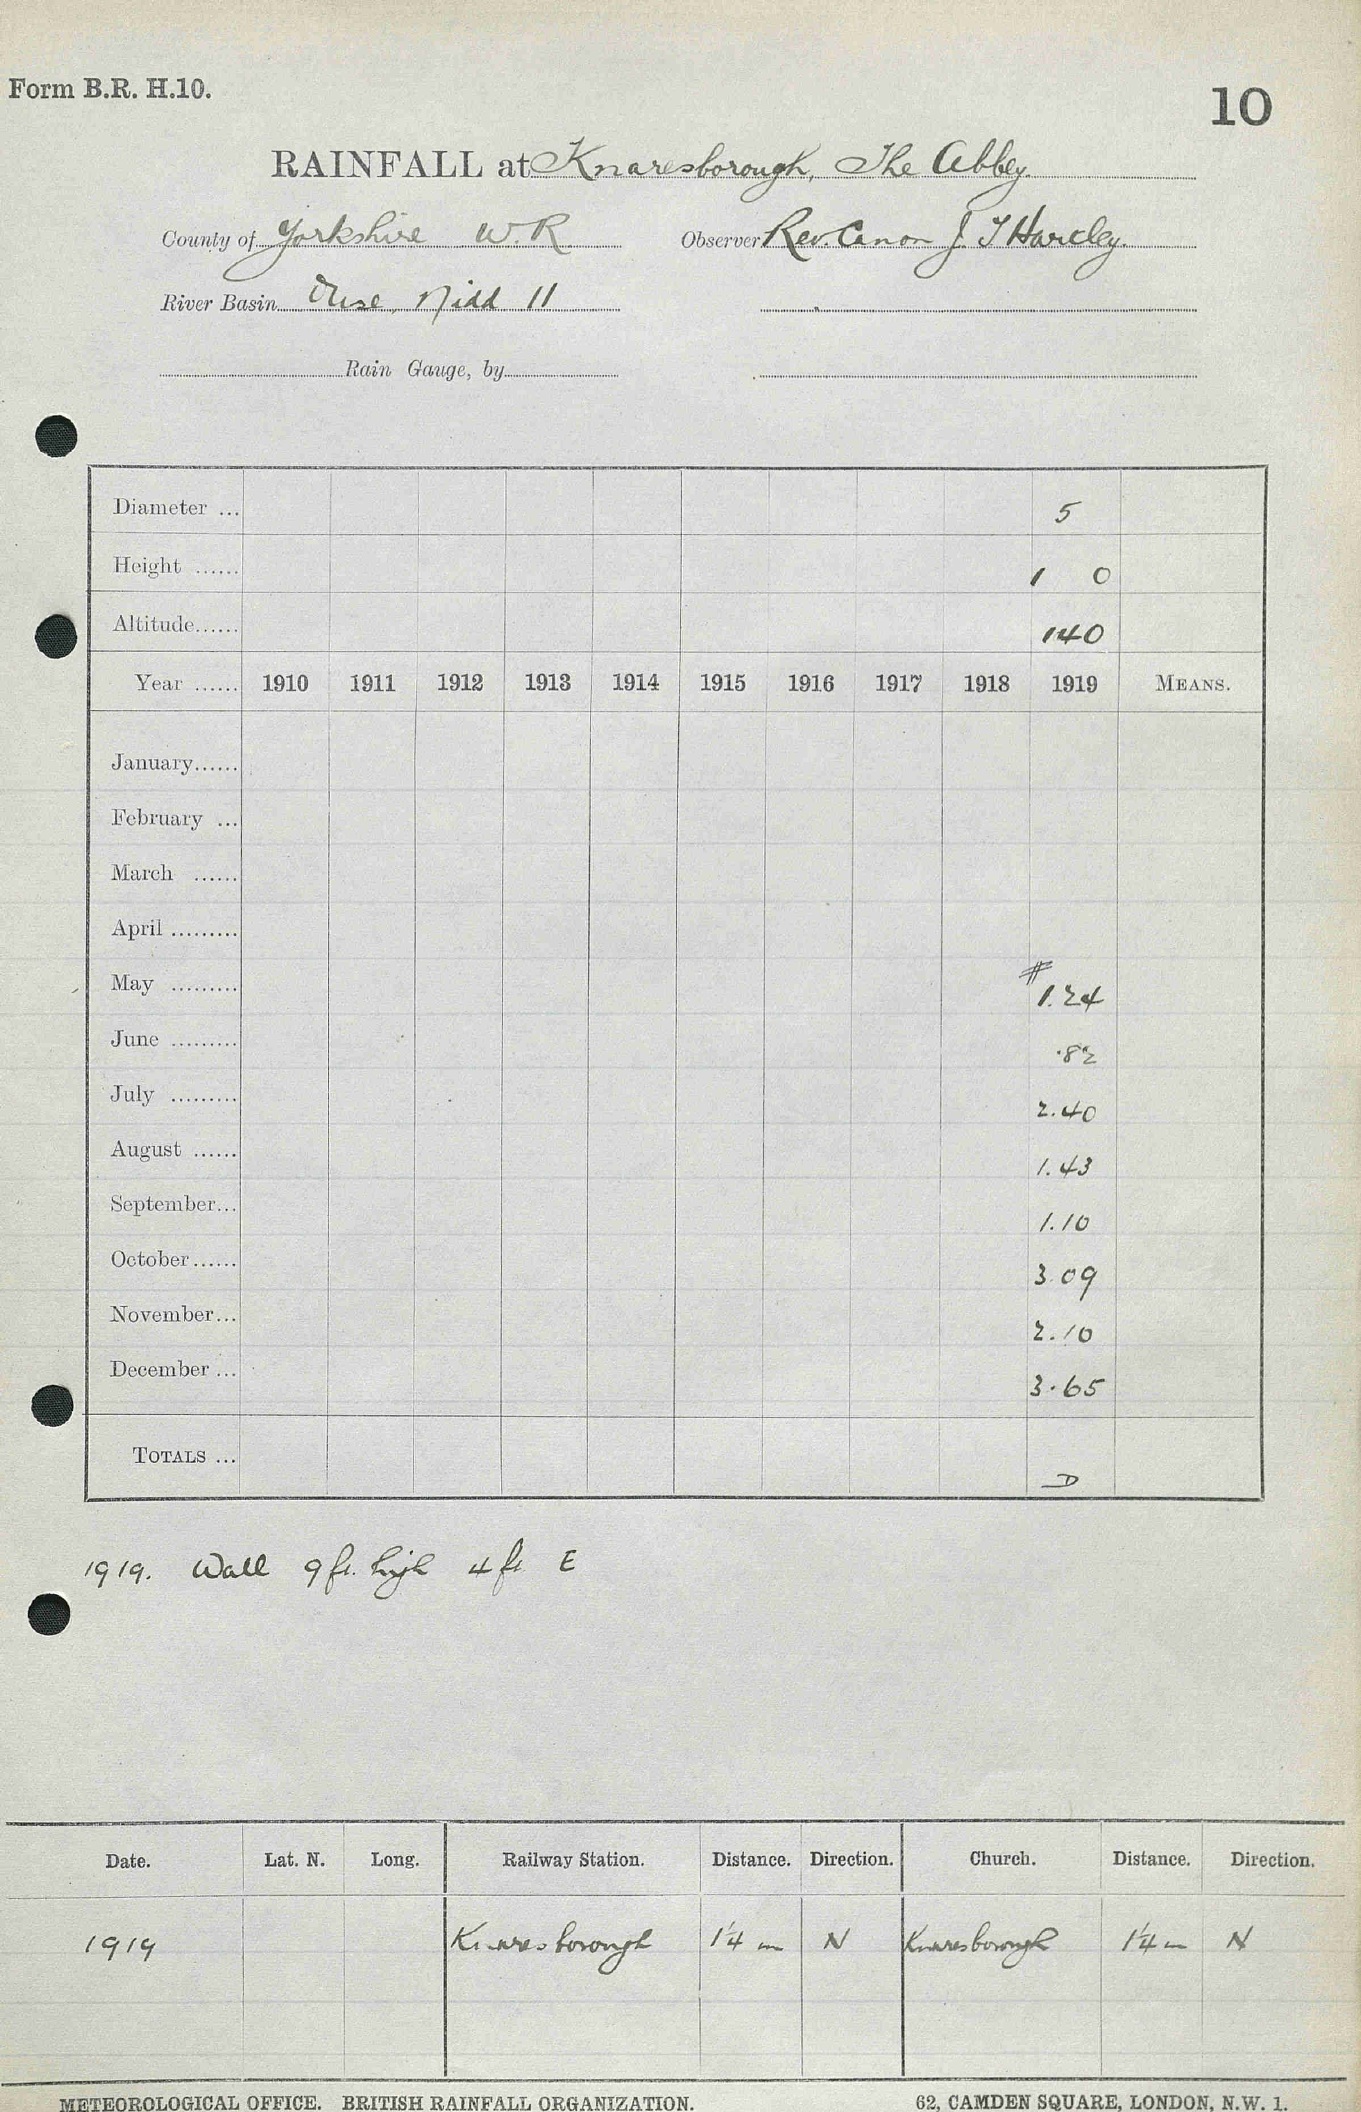 Form B.R. H.10.
10
RAINFALL at Knaresborough, The Abbey.
County of Yorkshire W.R. Observer Rev. Canon J T Hartley.
River Basin Ouse, Nidd 11
Rain Gauge, by
Diameter ... 5
Height ...... 1 0
Altitude...... 140
Year ...... 1910 1911 1912 1913 1914 1915 1916 1917 1918 1919 MEANS.
January......
February ...
March ......
April .........
May ......... # 1.24
June ......... .82
July ......... 2.40
August ...... 1.43
September... 1.10
October...... 3.09
November... 2.10
December ... 3.65
TOTALS ... D
1919. Wall 9 ft. high 4 ft E
Date. Lat. N. Long. Railway Station. Distance. Direction. Church. Distance. Direction.
1919 Knaresborough 1¼ m N Knaresborough 1¼ m N
METEOROLOGICAL OFFICE. BRITISH RAINFALL ORGANIZATION. 62, CAMDEN SQUARE, LONDON, N.W. 1.